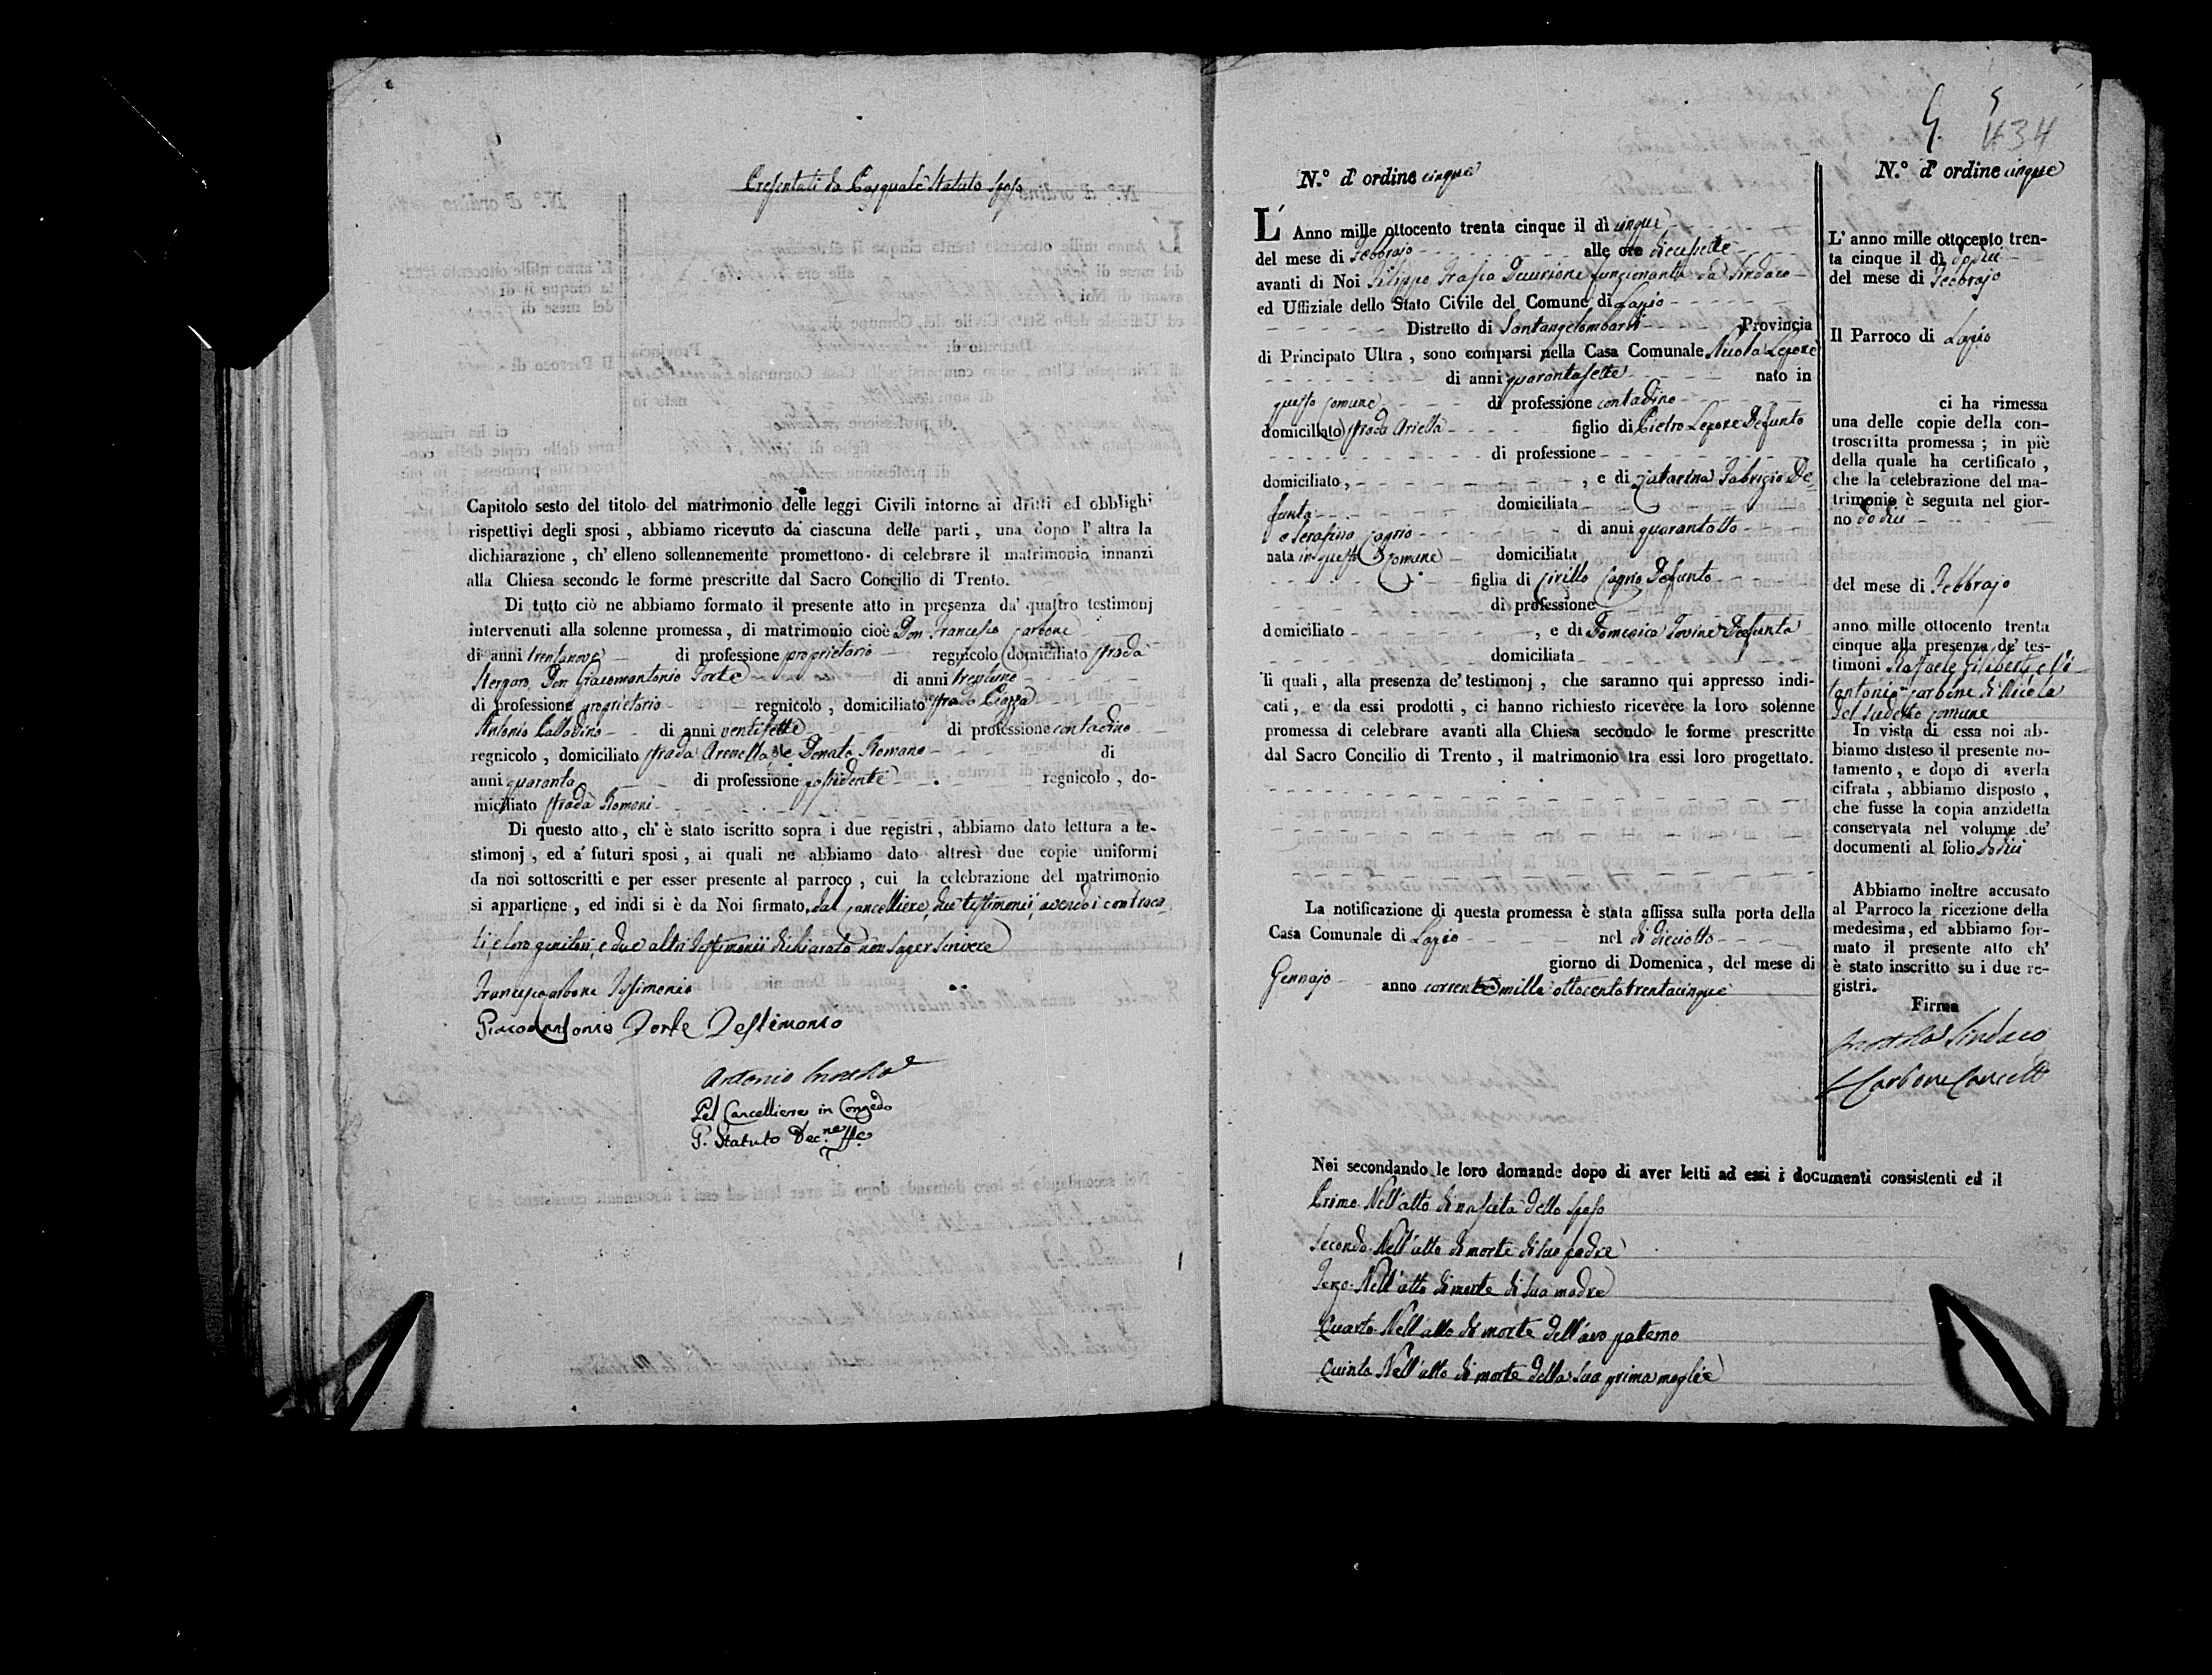 Presentati da Pasquale Statuto sposo
Capitolo sesto del titolo del matrimonio delle leggi Civili intorno ai dritti ed obblighi
rispettivi degli sposi , abbiamo ricevuto da ciascuna delle parti , una dopo l' altra la
dichiarazione , ch' elleno sollennemente promettono di celebrare il matrimonio innanzi
alla Chiesa secondo le forme prescritte dal Sacro Concilio di Trento.
Di tutto ciò ne abbiamo formato il presente atto in presenza da' quattro testimonj
intervenuti alla solenne promessa, di matrimonio cioè Don Francesco Carbone
di anni trentanove di professione proprietario regnicolo domiciliato strada
Don Giacomantonio Forte di anni trentuno
di professione proprietario regnicolo , domiciliato strada Piazza
Antonio Calladino di anni ventisette di professione contadino
regnicolo , domiciliato strada Arenella, e Donato Romano di
anni quaranta di professione possidente regnicolo , do-
miciliato strada Romani
Di questo atto, ch' è stato iscritto sopra i due registri, abbiamo dato lettura a te-
stimonj , ed a' futuri sposi , ai quali ne abbiamo dato altresì due copie uniformi
da noi sottoscritti e per esser presente al parroco , cui la celebrazione del matrimonio
si appartiene , ed indi si è da Noi firmato, dal Cancelliere, due testimonii, avendo i contraen
ti, e loro genitori, e due altri testimonii dichiarato non saper scrivere
Francesco Carbone Testimonio
Giacomantonio Forte Testimonio
Antonio
Pel Cancelliere in Congedo
P. Statuto Dec.ne ff.e
5 5
434
N.º d' ordine cinque
L' Anno mille ottocento trenta cinque il dì cinque
del mese di Febbrajo alle ore diecisette
avanti di Noi Filippo Decurione funzionante da Sindaco
ed Uffiziale dello Stato Civile del Comune di Lapio
Distretto di Santangelombardi Provincia
di Principato Ultra , sono comparsi nella Casa Comunale Nicola Lepore
di anni quarantasette nato in
questo Comune di professione contadino
domiciliato strada Arietta figlio di Pietro Lepore Defunto
di professione
domiciliato , , e di Catarina Fabrizio De-
funta domiciliata
e Serafina Cagno di anni quarantotto
nata in questo Comune domiciliata
figlia di Cirillo Cagno Defunto
di professione
domiciliato , e di Domenica Iovine Defunta
domiciliata
li quali , alla presenza de' testimonj , che saranno qui appresso indi-
cati , e da essi prodotti , ci hanno richiesto ricevere la loro solenne
promessa di celebrare avanti alla Chiesa secondo le forme prescritte
dal Sacro Concilio di Trento , il matrimonio tra essi loro progettato.
La notificazione di questa promessa è stata affissa sulla porta della
Casa Comunale di Lapio nel dì dieciotto
giorno di Domenica , del mese di
Gennajo anno corrente mille ottocentotrentacinque
N.º d' ordine cinque
L' anno mille ottocento tren-
ta cinque il dì dodici
del mese di Febbrajo
Il Parroco di Lapio
ci ha rimessa
una delle copie della con-
troscritta promessa ; in piè
della quale ha certificato ,
che la celebrazione del ma-
trimonio è seguita nel gior-
no dodici
del mese di Febbrajo
anno mille ottocento trenta
cinque alla presenza de' tes-
timoni Raffaele Giliberti, e Vi
tantonio Carbone di Nicola
del sudetto Comune
In vista di essa noi ab-
biamo disteso il presente no-
tamento , e dopo di averla
cifrata , abbiamo disposto ,
che fusse la copia anzidetta
conservata nel volume de'
documenti al folio dodici
Abbiamo inoltre accusato
al Parroco la ricezione della
medesima, ed abbiamo for-
mato il presente atto ch'
è stato inscritto su i due re-
gistri.
Firma
Sindaco
Carbone Cancell
Noi secondando le loro domande dopo di aver letti ad essi i documenti consistenti ed il
Primo Nell'atto di nascita dello sposo
Secondo Nell'atto di morte di suo padre
Terzo Nell'atto di morte di sua madre
Quarto Nell'atto di morte dell'avo paterno
Quinto Nell'atto di morte della sua prima moglie